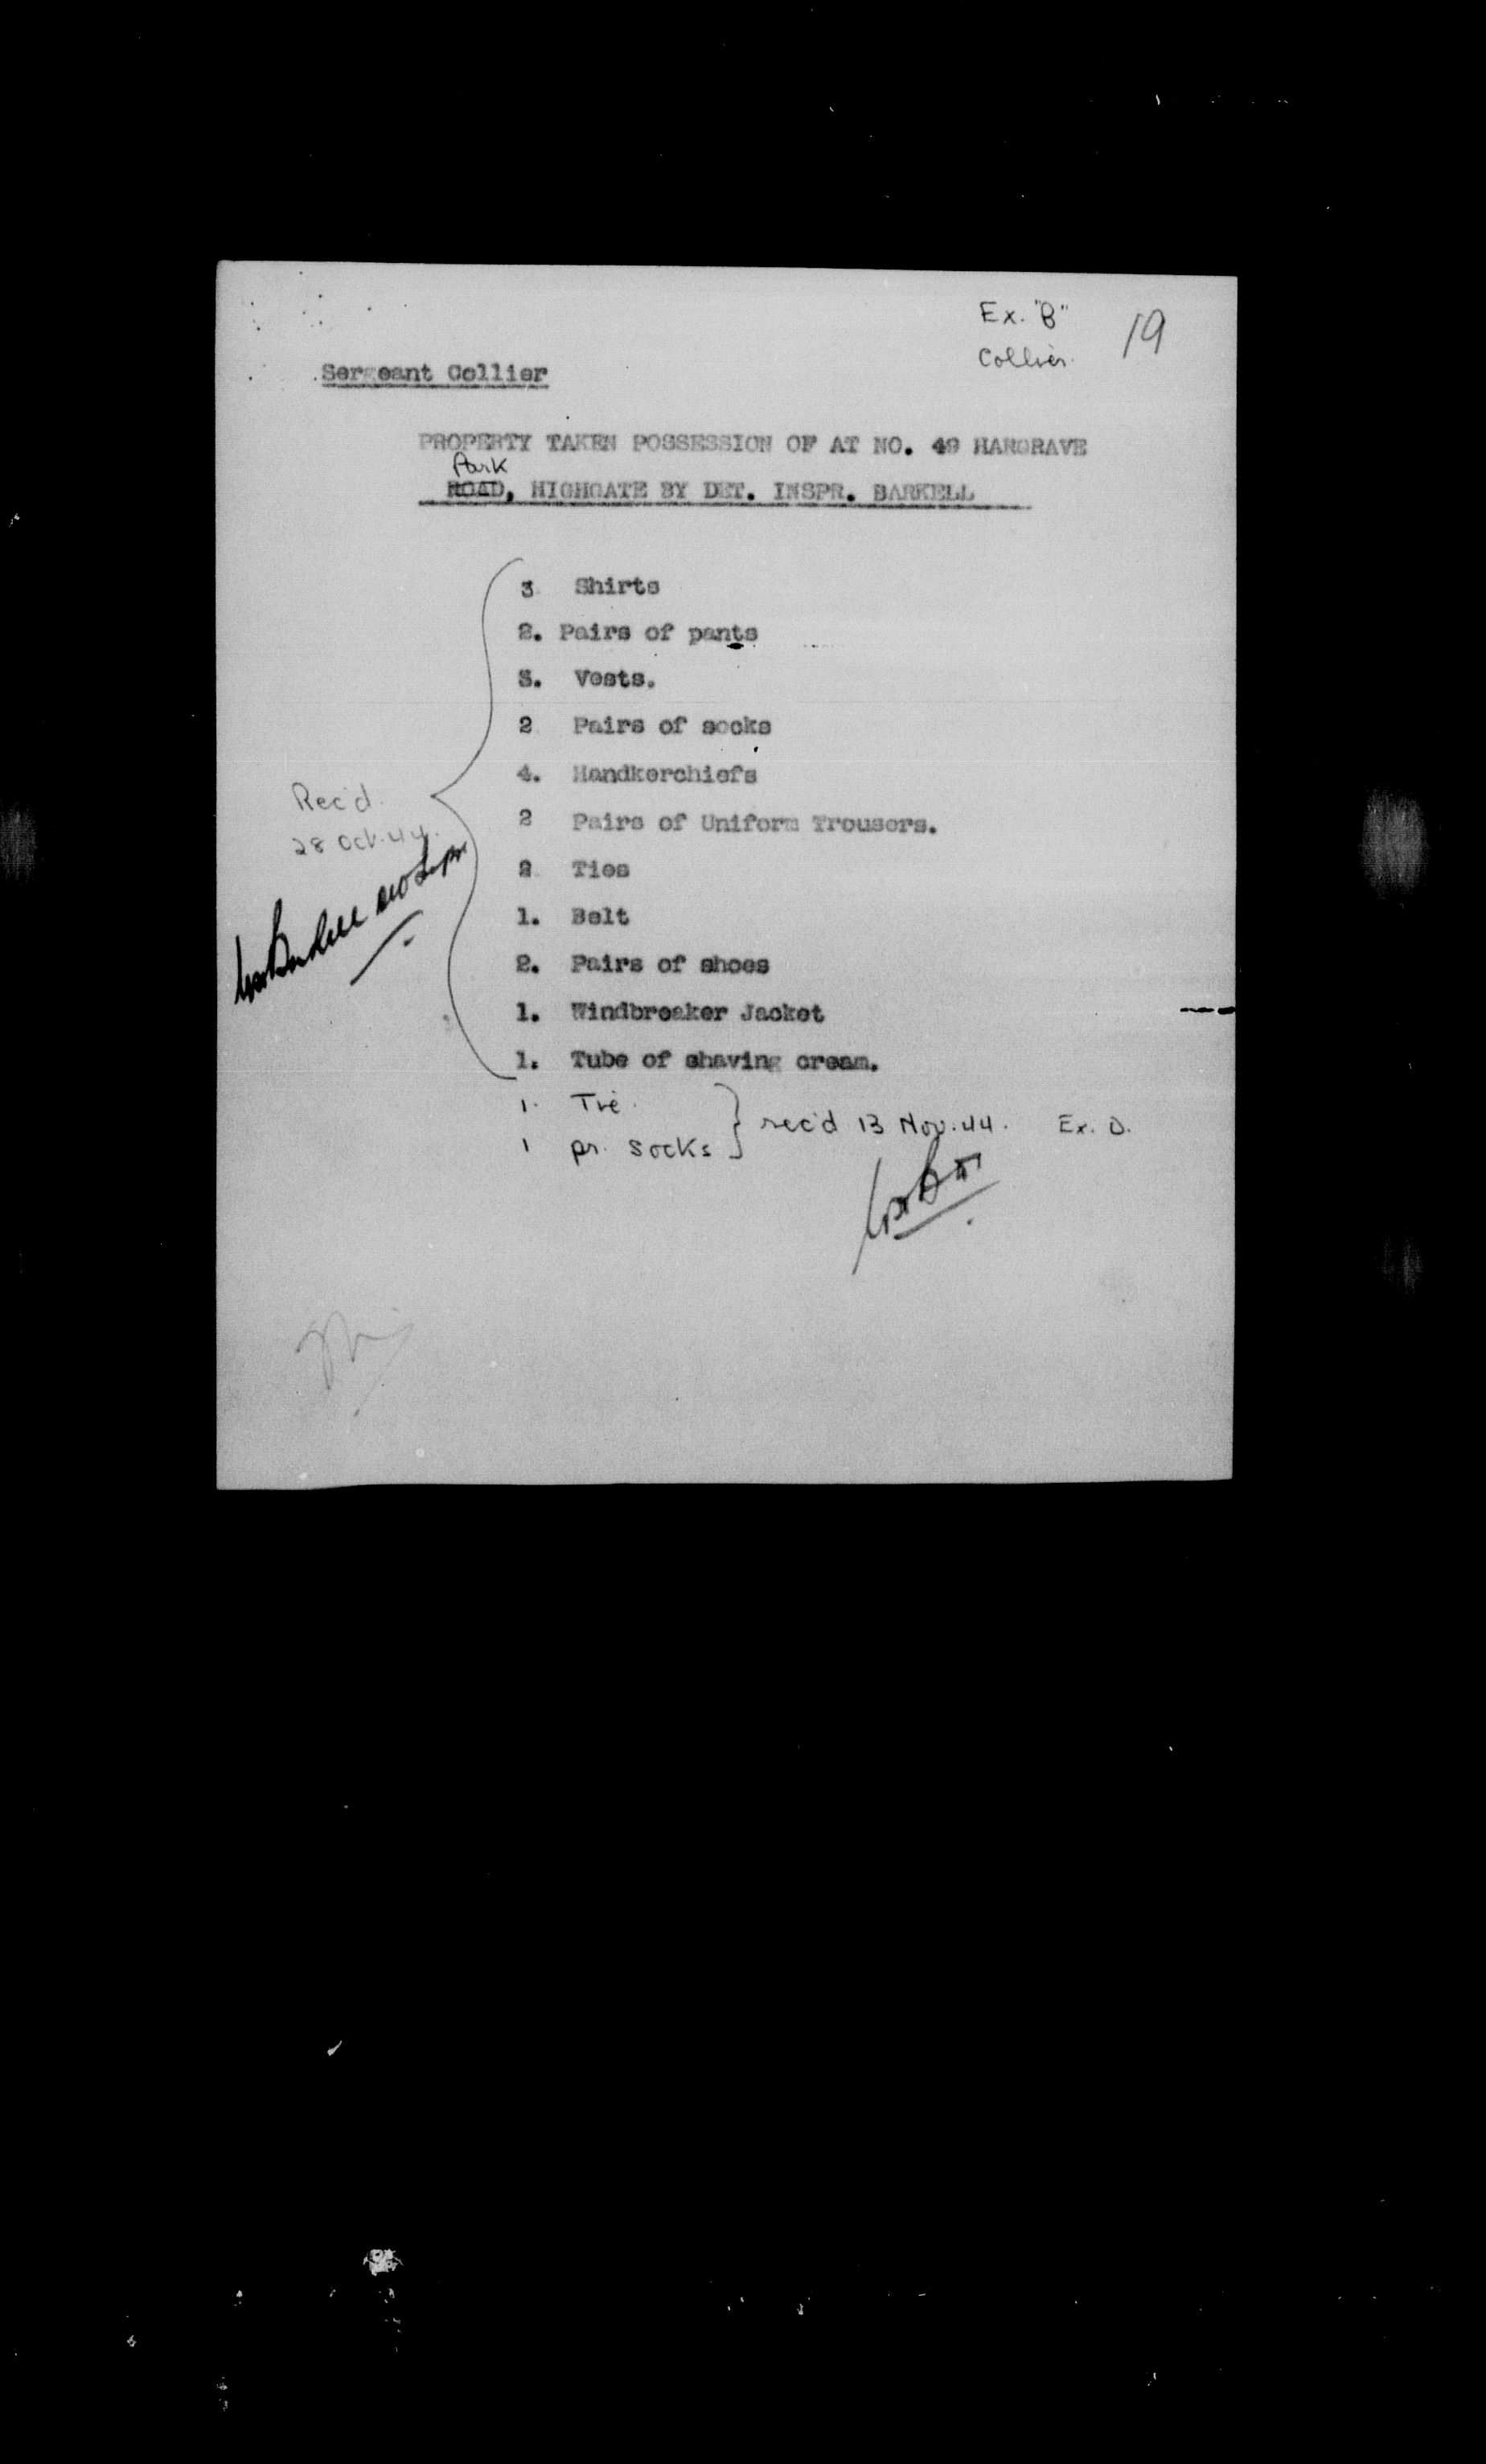 Ex. "B"
19
Collier.
Sergeant Collier
PROPERTY TAKEN POSSESSION OF AT NO. 49 HARGRAVE
Park
ROAD, HIGHGATE BY DET. INSPR. BARKELL
3 Shirts
2. Pairs of pants
3. Vests.
2 Pairs of socks
4. Handkerchiefs
Rec'd.
28 Oct. 44.
2 Pairs of Uniform Trousers.
2 Ties
1. Belt
2. Pairs of shoes
1. Windbreaker Jacket
1. Tube of shaving cream.
1. Tie.
1 pr. socks
rec'd 13 Nov. 44. Ex. D.